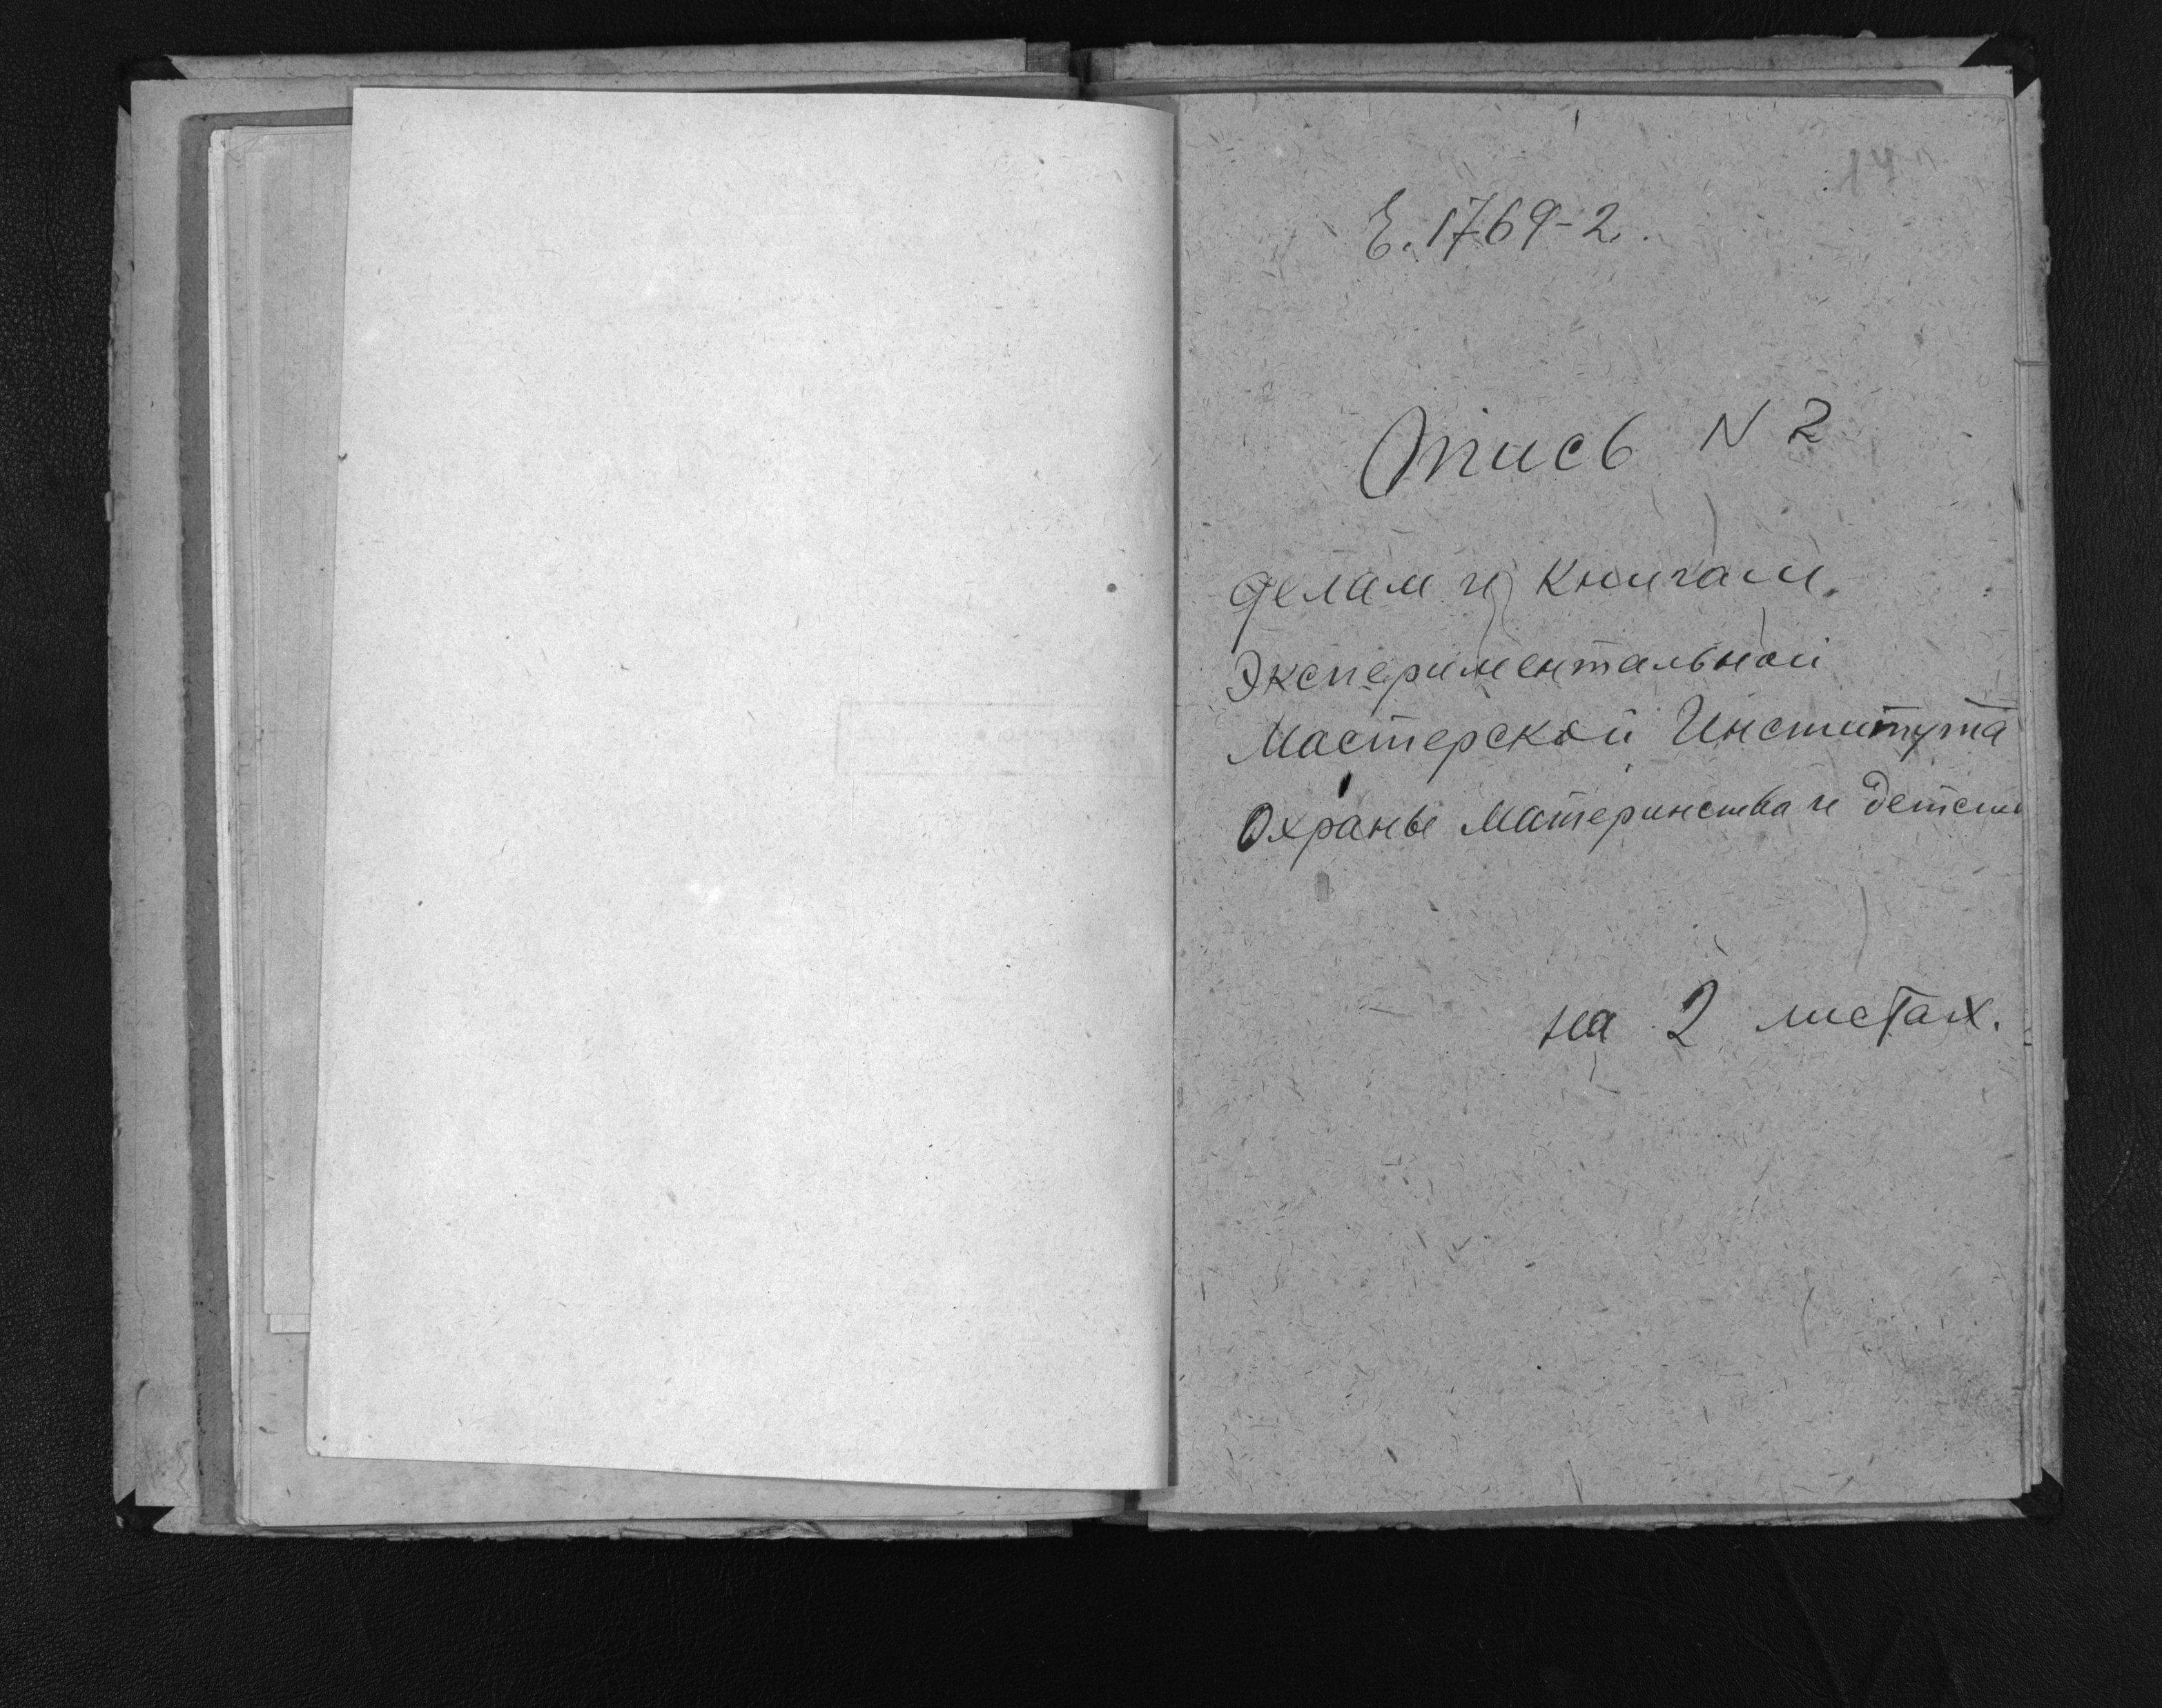 14
Е. 1769-2.
Опись N 2
делам и книгам
Экспериментальной
Мастерской Института
Охраны Материнства и детств
на 2 листах.